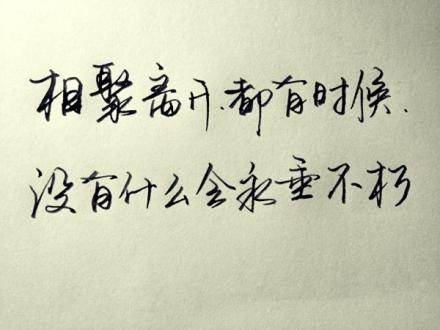 相聚离开.都有时候.
没有什么会永垂不朽